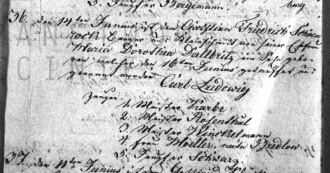 5. Jungfer Bergemann
36. den 14ten Junius ist dem Christian Friedrich Schöne
Bürger und von seiner Ehefrau
Maria Dorothea ein Sohn gebor
welcher den 16 Junius getauft und
genannt worden
Carl Ludewig
Zeugen 1. Meister Karbe
2. Meister Rosenthal
3. Meister Winckelmann
4. Frau Möller, nata Bredow
5. Jungfer Schwarz
37. den 14ten Junius ist